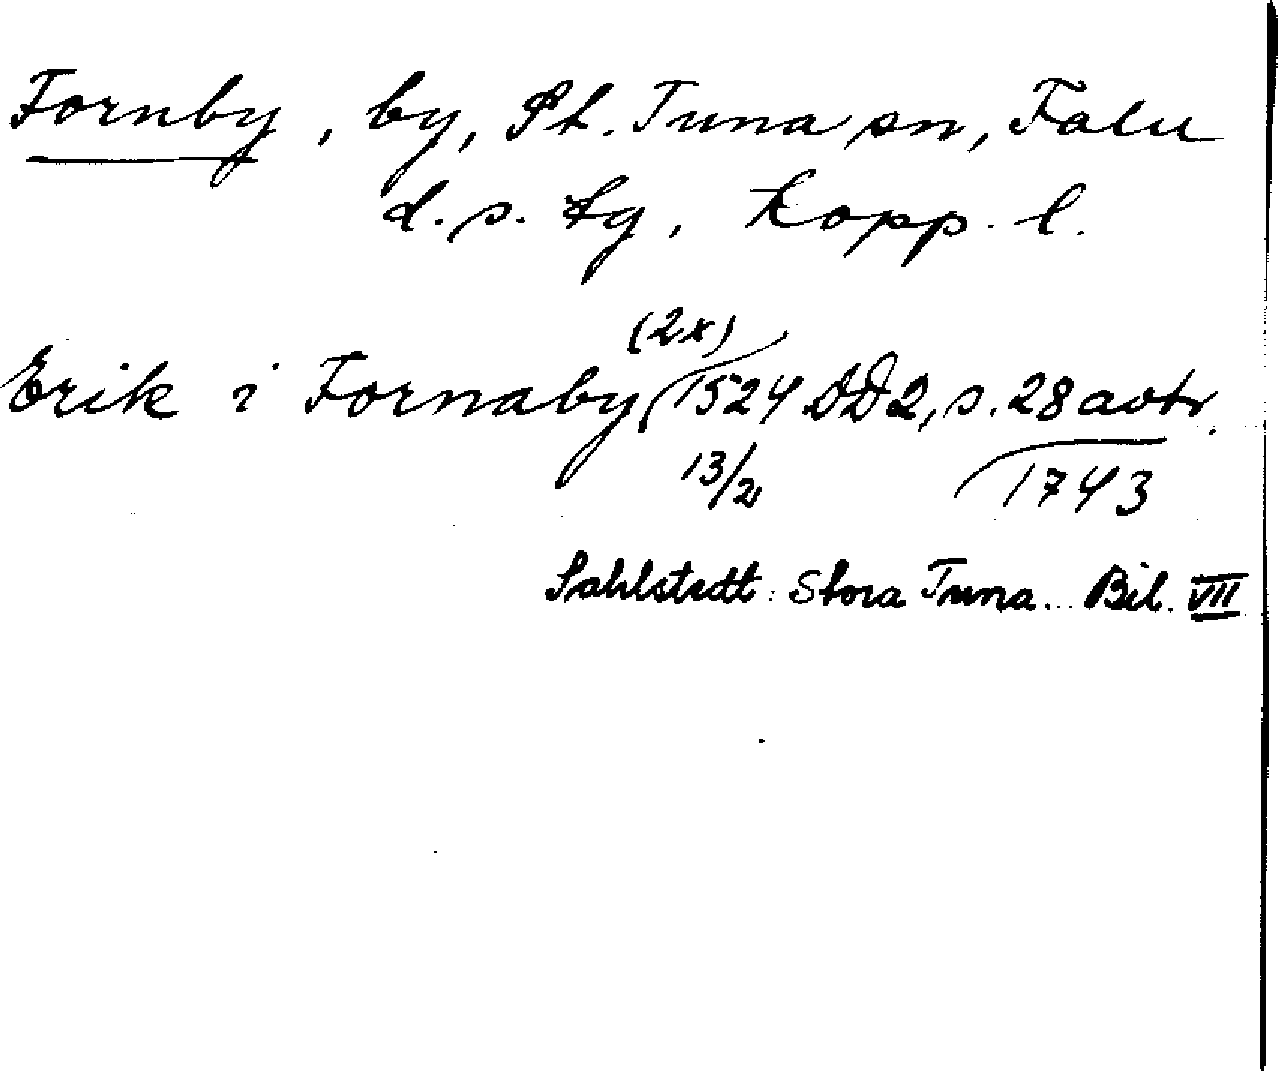 Fornby, by, St. Tuna sn, Falu
d.s. tg, Kopp. l.
(2x)
Erik i Fornaby 1524 DD2, s. 28 avtr.
13/2 1743
Sahlstedt: Stora Tuna. Bil. VII